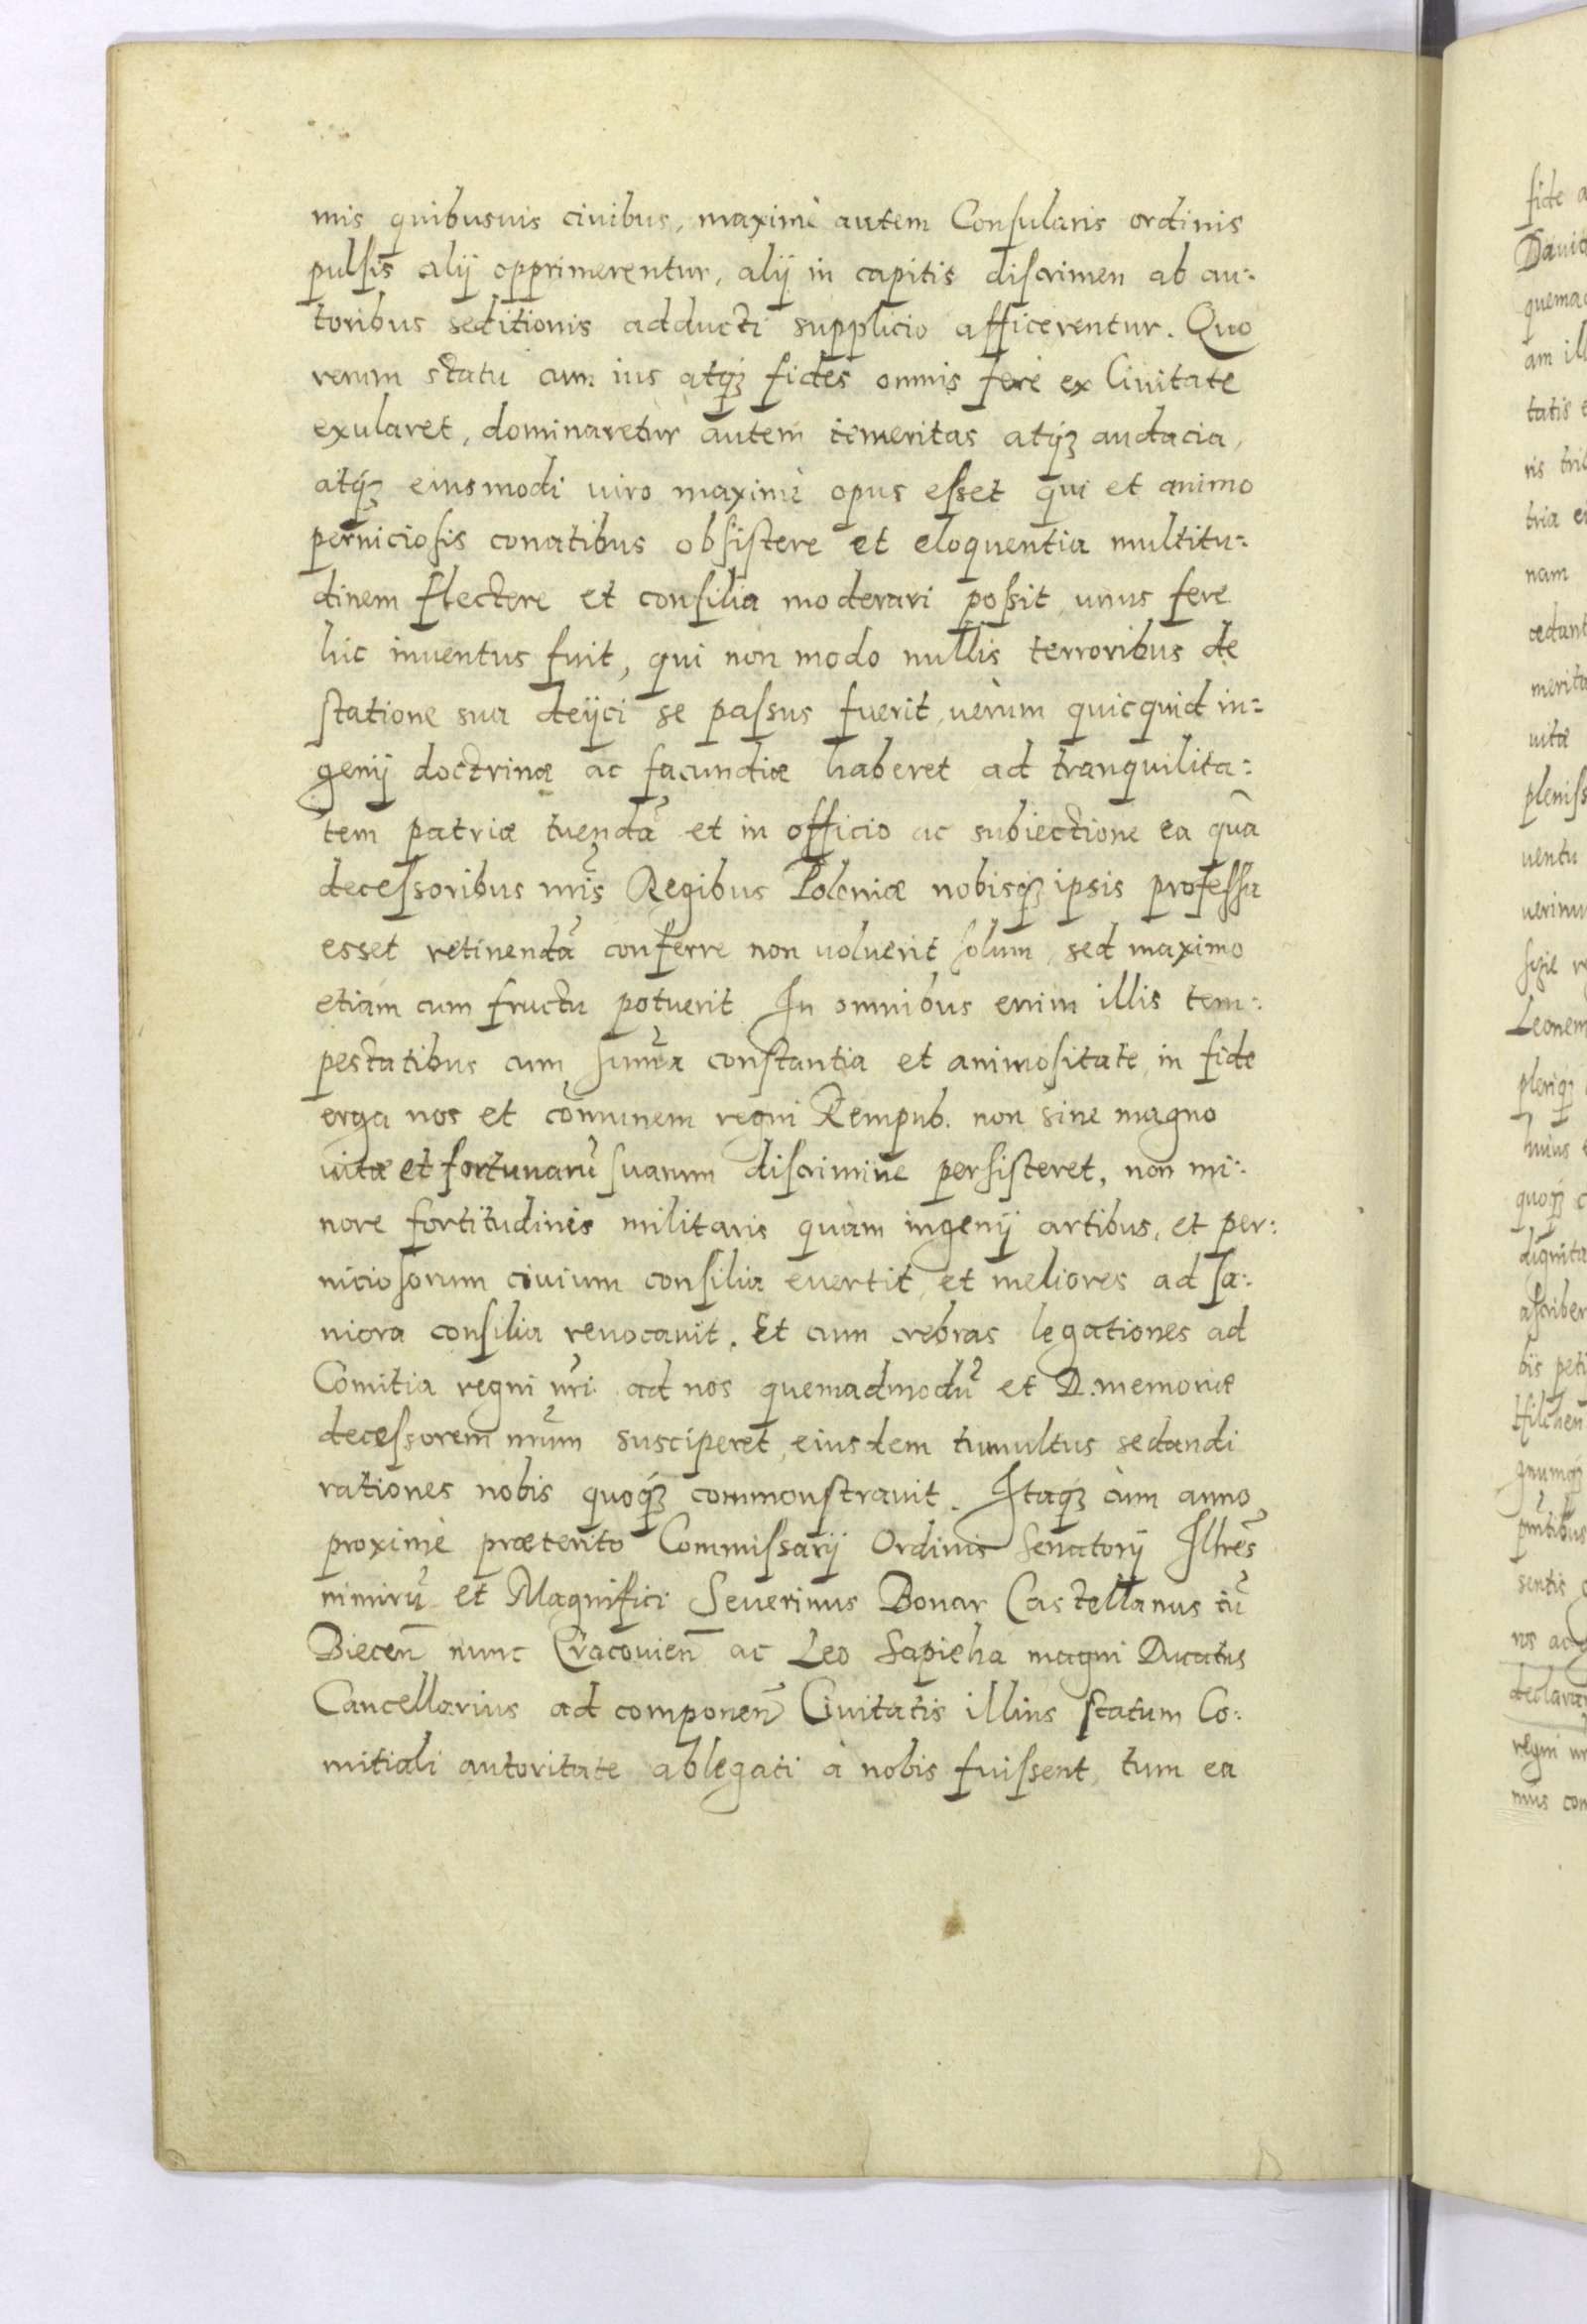 mis quibusuis ciuibus, maximè autem Consularis ordinis
pulsis alij opprimerentur, alij in capitis discrimen ab au:
toribus seditionis adducti supplicio afficerentur. Quo
rerum statu cum ius atq́ꝫ fides omnis ferè ex Ciuitate
exularet, dominaretur autem temeritas atq́ꝫ audacia,
atq́ꝫ eiusmodi uiro maximè opus esset qui et animo
perniciosis conatibus obsistere et eloquentia multitu:
dinem flectere et consilia moderari possit, unus fere
hic inuentus fuit, qui non modo nullis terroribus de
statione sua deijci se passus fuerit, uerùm quicquid in:
genij doctrinæ ac facundiæ haberet ad tranquilita:
tem patriæ tuendā et in officio ac subiectione ea quâ
decessoribus nr̃is Regibus Poloniæ nobisq́ꝫ ipsis professa
esset retinendā conferre non uoluerit solum, sed maximo
etiam cum fructu potuerit. In omnibus enim illis tem:
pestatibus cum sum̃a constantia et animositate, in fide
erga nos et cōmunem regni Rempub. non sine magno
uitæ et fortunarū suarum discrimine persisteret, non mi:
nore fortitudinis militaris quàm ingenij artibus, et per:
niciosorum ciuium consilia euertit, et meliores ad sa:
niora consilia reuocauit. Et cum crebras legationes ad
Comitia regni nr̃i ad nos quemadmodū et D. memoriæ
decessorem nr̃um susciperet, eiusdem tumultus sedandi
rationes nobis quoq́ꝫ commonstrauit. Itaq́ꝫ cùm anno
proximè præterito Commissarij Ordinis Senatorij Illr̃es
nimirū et Magnifici Seuerinus Bonar Castellanus tū
Biecen̄ nunc Cracouien̄ ac Leo Sapieha magni Ducatus
Cancellarius ad componen̄ Ciuitatis illius statum Co:
mitiali autoritate ablegati à nobis fuissent, tum ea